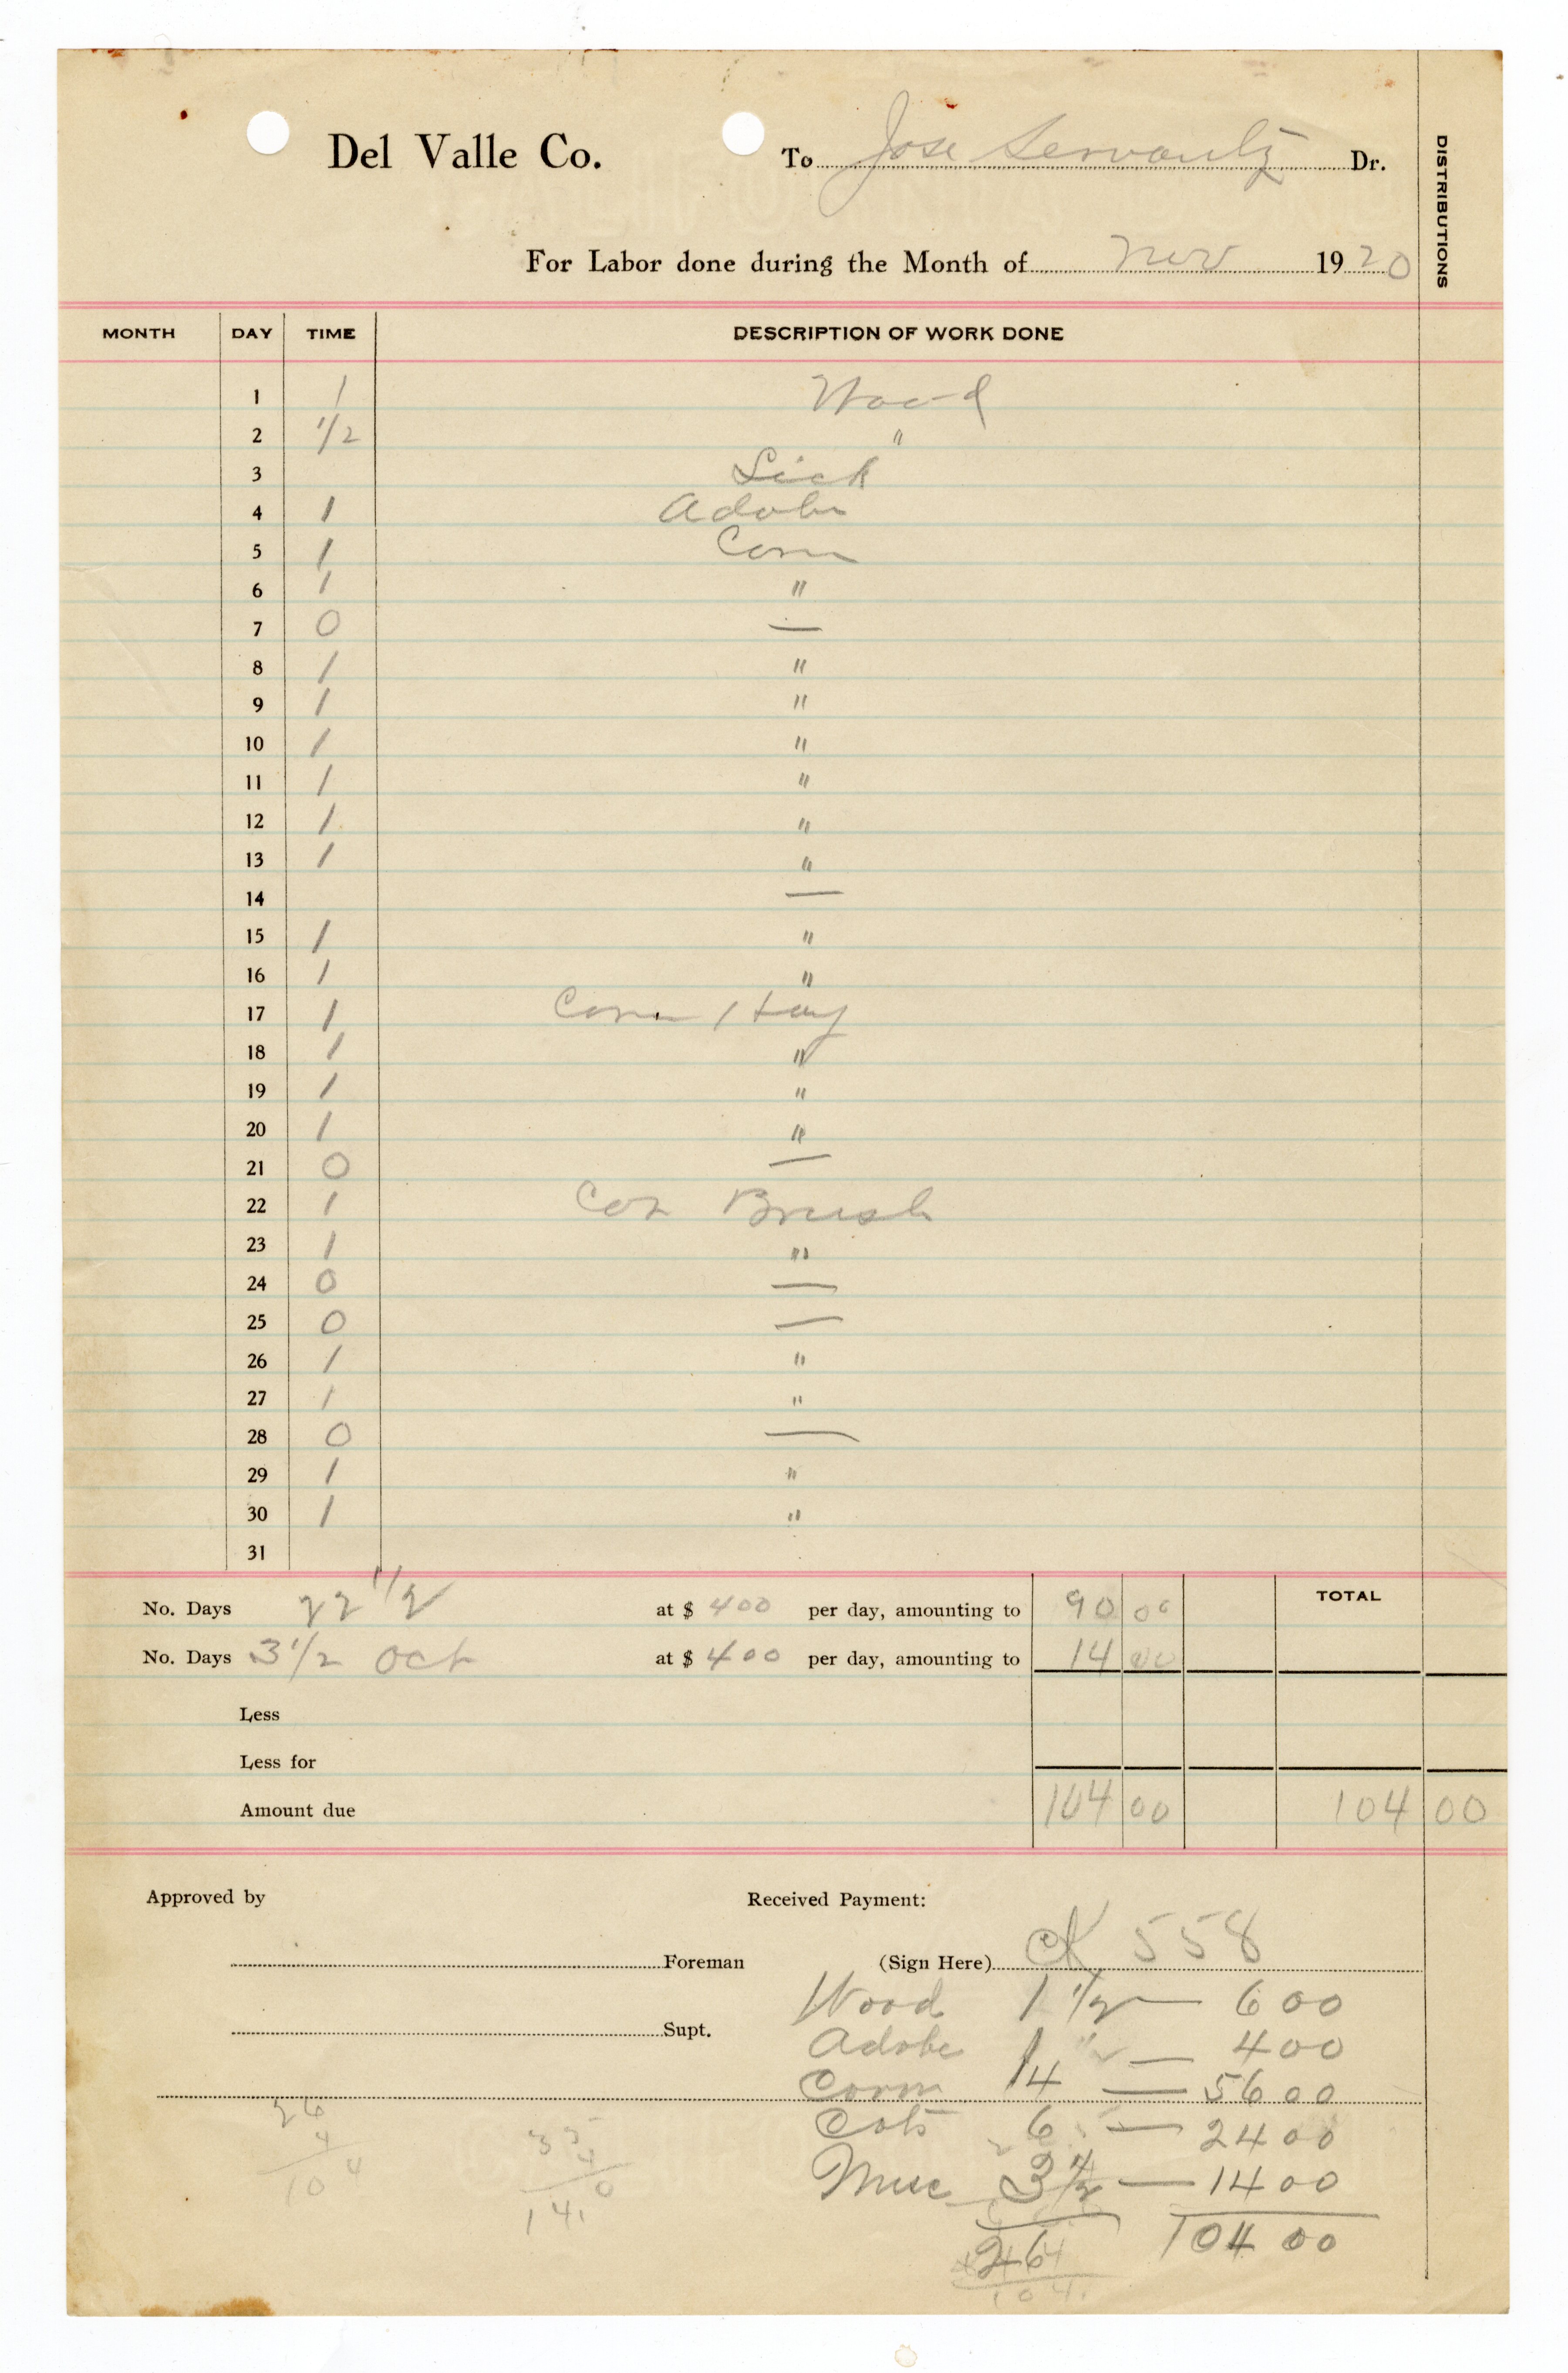 Del Valle Co. To Jose Servantz Dr.
DISTRIBUTIONS
For Labor done during the Month of Nov 1920
MONTH DAY TIME DESCRIPTION OF WORK DONE
1 1 Wood
2 1/2 "
3 Sick
4 1 Adobe
5 1 Corn
6 1 "
7 0 —
8 1 "
9 1 "
10 1 "
11 1 "
12 1 "
13 1 "
14 —
15 1 "
16 1 "
17 1 Corn Hay
18 1 "
19 1 "
20 1 "
21 0 —
22 1 Cots Brush
23 1 "
24 0 —
25 0 —
26 1 "
27 1 "
28 0 —
29 1 "
30 1 "
31
No. Days 22 1/2 at $ 400 per day, amounting to 90 00 TOTAL
No. Days 3 1/2 Oct at $ 400 per day, amounting to 14 00
Less
Less for
Amount due 104 00 104 00
Approved by Received Payment:
Foreman (Sign Here) CK 558
Wood 1 1/2 — 6 00
Supt.
Adobe 1 — 4 00
Corn 14 — 56 00
Cots 6 — 24 00
Misc 3 1/2 — 14 00
26 104 00
26
4
104
35
4
14.0
104.